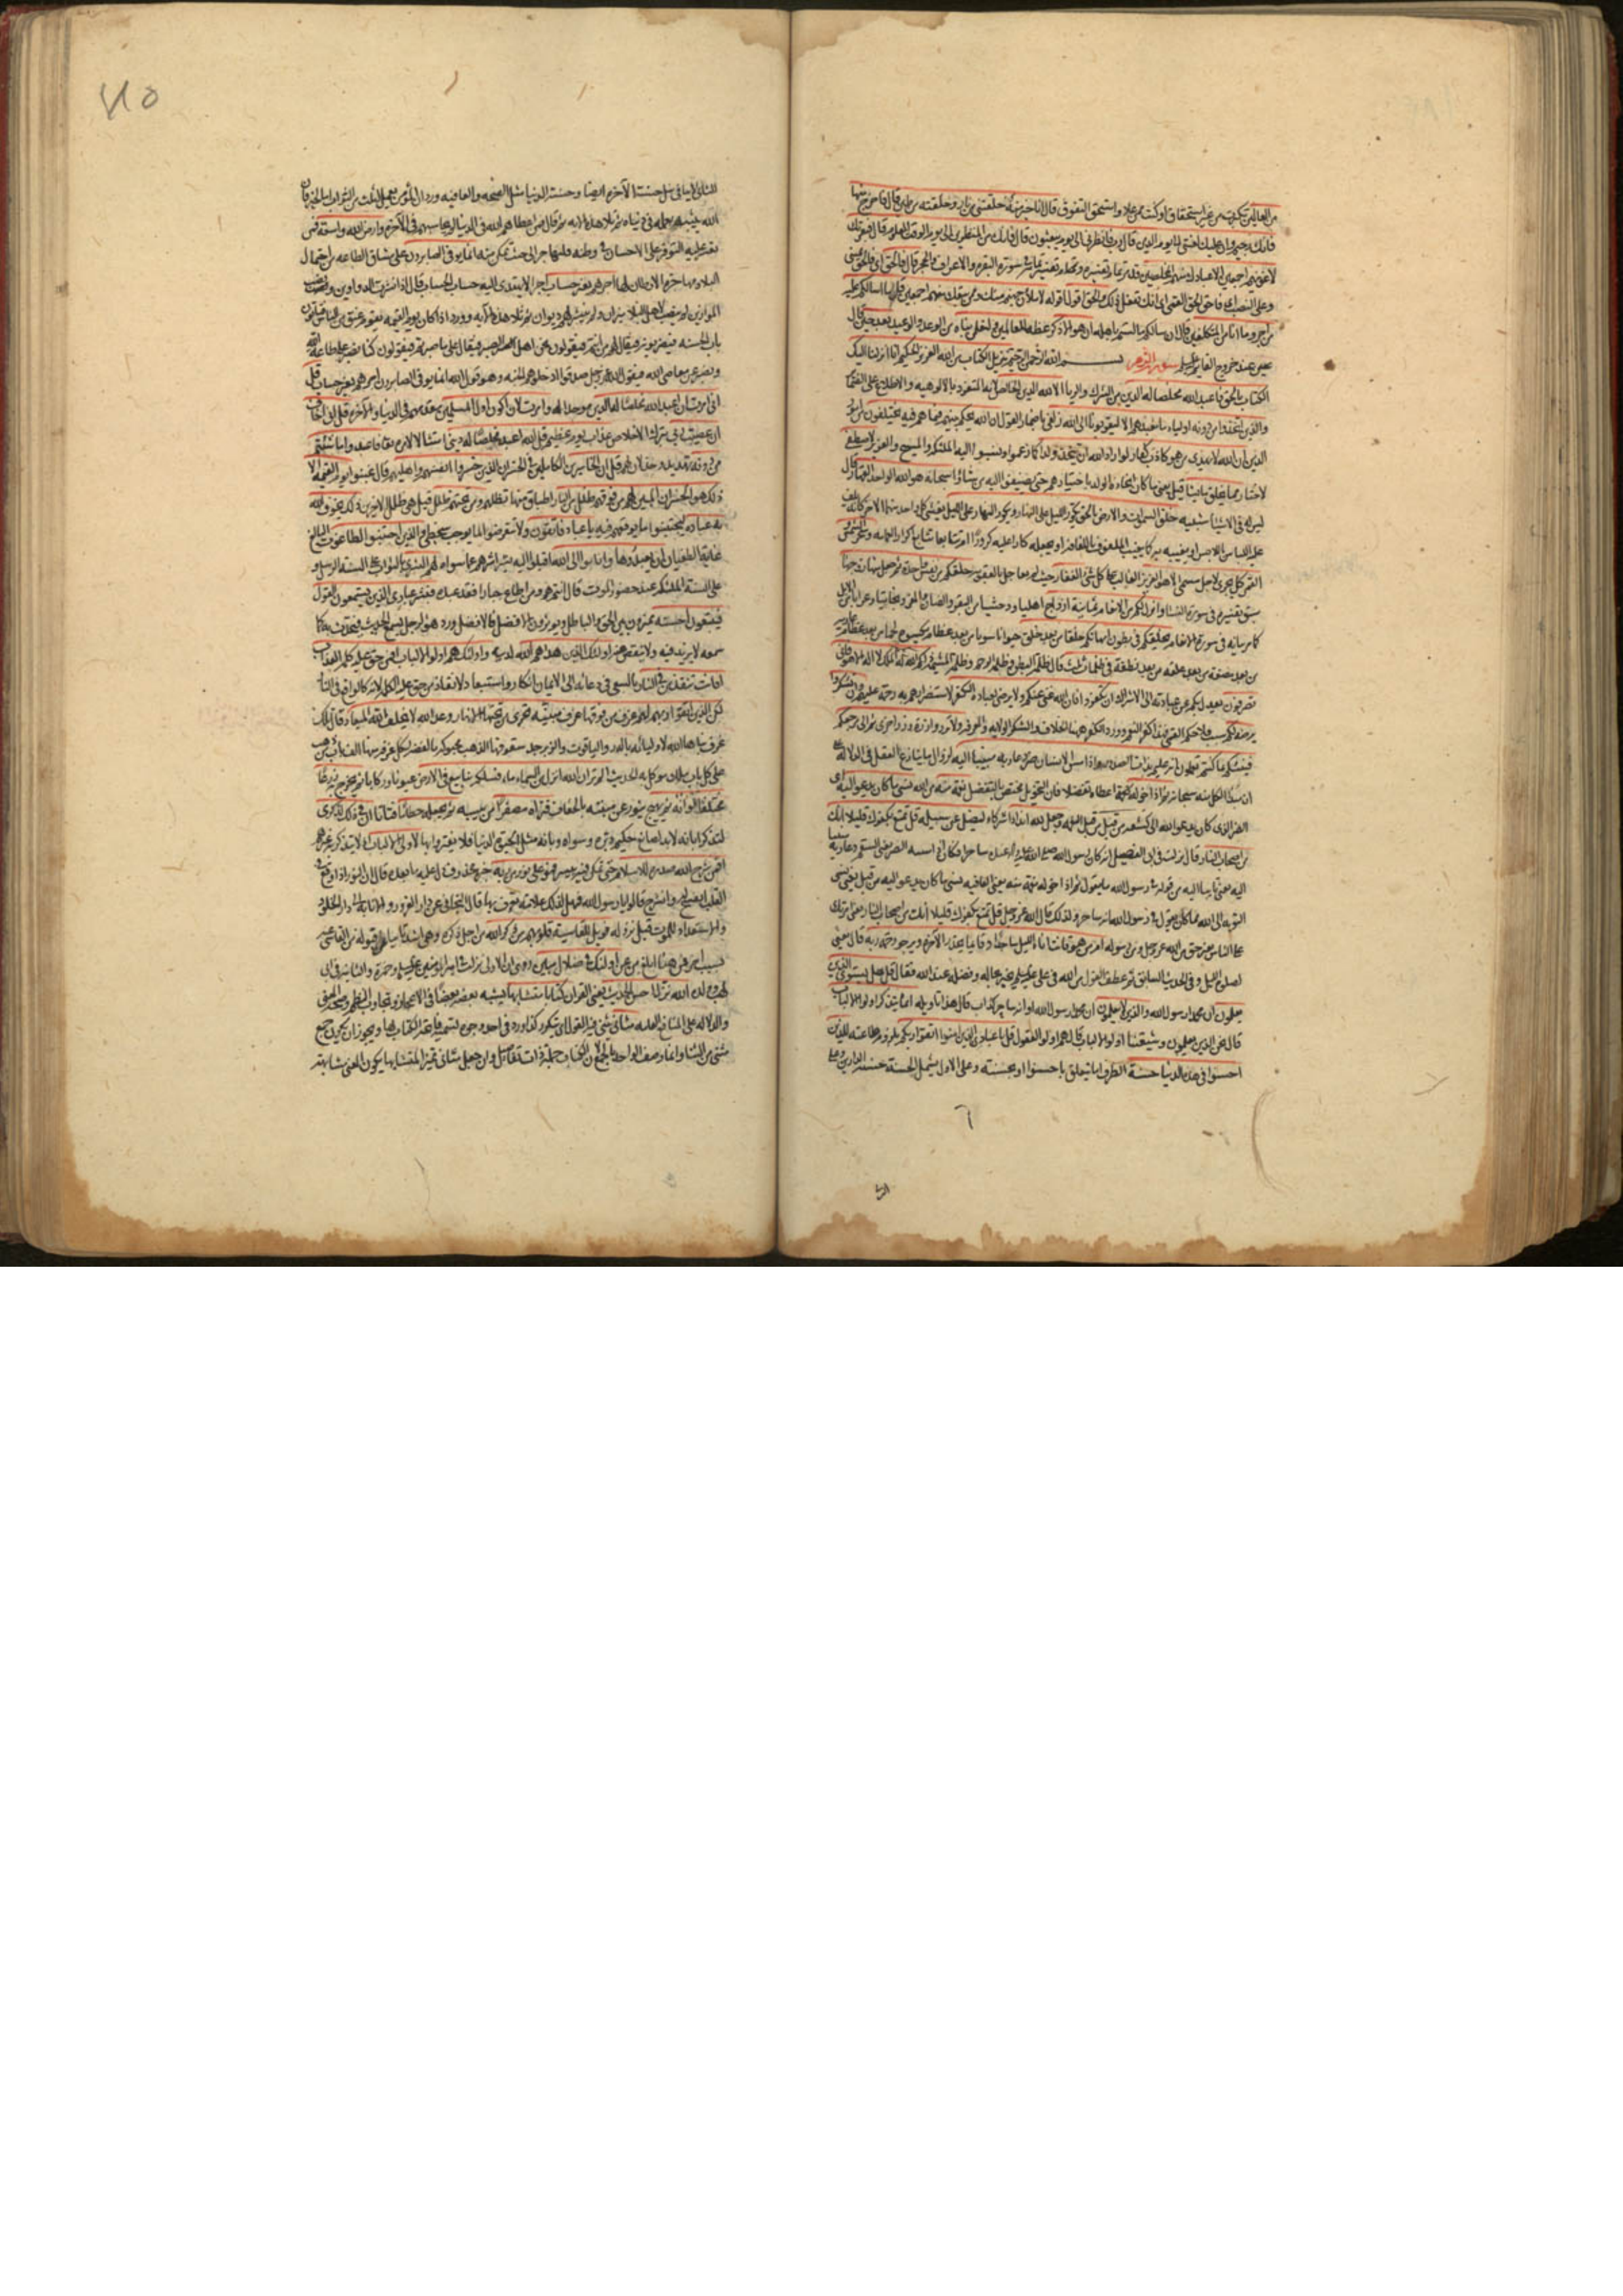 من العالين تكبرت من غير استحقاق او كنت ممن علا واستحق التفوق قال انا خير منه خلقتني من نار وخلقته من طين قال فاخرج منها
فانك رجيم وان عليك لعنتي الى يوم الدين قال رب فانظرني الى يوم يبعثون قال فانك من المنظرين الى يوم الوقت المعلوم قال فبعزتك
لاغوينهم اجمعين الا عبادك منهم المخلصين قد مر تمام تفسيره في سورة البقرة والاعراف والحجر قال فالحق اي فالحق
وعلى النصب اي فاحق الحق والحق اقول اقوله لاملأن جهنم منك وممن تبعك منهم اجمعين قل ما اسالكم عليه
من اجر وما انا من المتكلفين ان هو الا ذكر عظة للعالمين ولتعلمن نباه من الوعد والوعيد بعد حين قال
عند خروج القايم عليه السلام سورة الزمر بسم الله الرحمن الرحيم تنزيل الكتاب من الله العزيز الحكيم انا انزلنا اليك
الكتاب بالحق فاعبد الله مخلصا له الدين من الشرك والريا الا لله الدين الخالص لانه المتفرد بالالوهيه والاطلاع على الضماير
والذين اتخذوا من دونه اولياء ما نعبدهم الا ليقربونا الى الله زلفى باضمار القول ان الله يحكم بينهم فيما هم فيه يختلفون من امور
الدين ان الله لا يهدي من هو كاذب كفار لو اراد الله ان يتخذ ولدا كما زعموا ونسبوا اليه الملئكة والمسيح والعزير لاصطفى
لاختار مما يخلق ما يشا قيل يعني ما كان اتخاذه الولد باختيارهم حتى يضيفوا اليه من شاؤا سبحانه هو الله الواحد القهار
ليس له في الاشيا شبيه خلق السموات والارض بالحق يكور الليل على النهار ويكور النهار على الليل يغشي كل واحد منهما الاخر كانه يلف
عليه لف اللباس باللابس او يغيبه به كما يغيب الملفوف باللفافة او يجعله كارا عليه كرورا متتابعا تتابع اكوار العمامه وسخر الشمس
والقمر كل يجري لاجل مسمى الا هو العزيز الغالب على كل شئ الغفار حيث لم يعاجل بالعقوبة خلقكم من نفس واحدة ثم جعل منها زوجها
سبق تفسيره في سورة النسا وانزل لكم من الانعام ثمانية ازواج اهليا ووحشيا من البقر والضان والمعز وبخاتيا وعرابا من الابل
كما مر بيانه في سورة الانعام يخلقكم في بطون امهاتكم خلقا من بعد خلق حيوانا سويا من بعد عظام مكسوة لحما من بعد عظام عارية
من بعد مضغة من بعد علقه من بعد نطفة في ظلمات ثلث قال ظلمة البطن وظلمة الرحم وظلمة المشيمة ذلكم الله ربكم له الملك لا اله الا هو فانى
تصرفون يعدل بكم عن عبادته الى الاشراك ان تكفروا فان الله غني عنكم ولا يرضى لعباده الكفر لاستضرارهم به رحمة عليهم وان تشكروا
يرضه لكم لانه سبب فلاحكم ورد الكفر ههنا الخلاف والشكر الولاية والمعرفة ولا تزر وازرة وزر اخرى ثم الى ربكم مرجعكم
فينبئكم بما كنتم تعملون انه عليم بذات الصدور واذا مس الانسان ضر دعا ربه منيبا اليه لزوال ما ينازع العقل في الدلالة على
ان مبدأ الكل منه سبحانه ثم اذا خوله اعطاه تفضلا فان التخويل مختص بالتفضل نعمة منه من الله نسي ما كان يدعو اليه اي
الضر الذي كان يدعو الله الى كشفه من قبل من قبل النعمة وجعل لله اندادا شركاء ليضل عن سبيله قل تمتع بكفرك قليلا انك
من اصحاب النار قال نزلت في ابي الفصيل انه كان رسول الله صلى الله عليه وآله عنده ساحرا فكان اذا مسه الضر يعني السقم دعا ربه منيبا
اليه يعني تايبا اليه من قوله في رسول الله ما يقول ثم اذا خوله نعمة منه يعني العافيه نسي ما كان يدعو اليه من قبل يعني نسي
التوبه الى الله مما كان يقول في رسول الله انه ساحر ولذلك قال الله عز وجل قل تمتع بكفرك قليلا انك من اصحاب النار يعني امرتك
على الناس بغير حق من الله عز وجل ومن رسوله امن هو قانت اناء الليل ساجدا وقايما يحذر الآخرة ويرجو رحمة ربه قال يعني
صلوة الليل وفي الحديث السابق ثم عطف القول من الله في علي عليه السلم يخبر بحاله وفضله عند الله فقال قل هل يستوي الذين
يعلمون ان محمدا رسول الله والذين لا يعلمون ان محمدا رسول الله وانه ساحر كذاب قال هذا تاويله انما يتذكر اولوا الالباب
قال نحن الذين يعلمون وشيعتنا اولوا الالباب قل يا عبادي الذين امنوا اتقوا ربكم بلزوم طاعته للذين
احسنوا في هذه الدنيا حسنة الظرف اما يتعلق باحسنوا او بحسنة وعلى الاول يشمل الحسنة حسنة الدارين وعلى
الثاني لا ينافي نيل حسنة الآخرة ايضا وحسنة الدنيا مثل الصحة والعافيه ورد ان المؤمن يعمل لثلث من الثواب اما لخير فان
الله يثيبه بعمله في دنياه ثم تلا هذه الاية ثم قال فمن اعطاهم الله في الدنيا لم يحاسبهم به في الآخرة وارض الله واسعة فمن
تعسر عليه التوفر على الاحسان في وطنه فليهاجر الى حيث تمكن منه انما يوفى الصابرون على مشاق الطاعه من احتمال
البلاء ومهاجرة الاوطان لها اجرهم بغير حساب اجرا لا يهتدى اليه حساب الحساب قال اذا نشرت الدواوين ونصبت
الموازين لم ينصب لاهل البلاء ميزان ولم ينشر لهم ديوان ثم تلا هذه الآيه وورد اذا كان يوم القيمه يقوم عنق من الناس فياتون
باب الجنه فيضربونه فيقال لهم من انتم فيقولون نحن اهل الصبر فيقال على ما صبرتم فيقولون كنا نصبر على طاعة الله
ونصبر عن معاصي الله فيقول الله عز وجل صدقوا ادخلوهم الجنة وهو قول الله انما يوفى الصابرون اجرهم بغير حساب قل
اني امرت ان اعبد الله مخلصا له الدين موحدا له وامرت لان اكون اول المسلمين مقدمهم في الدنيا والآخرة قل اني اخاف
ان عصيت ربي بترك الاخلاص عذاب يوم عظيم قل الله اعبد مخلصا له ديني امتثالا لامره فاعبدوا ما شئتم
من دونه تهديد وخذلان لهم قل ان الخاسرين الكاملين في الخسران الذين خسروا انفسهم واهليهم قال غبنوا يوم القيمة الا
ذلك هو الخسران المبين لهم من فوقهم ظلل من النار اطباق منها تظلهم ومن تحتهم ظلل قيل هي ظلل الآخرين ذلك يخوف الله
به عباده ليجتنبوا ما يوقعهم فيه يا عباد فاتقون ولا تتعرضوا لما يوجب سخطي والذين اجتنبوا الطاغوت البالغ
غاية الطغيان ان يعبدوها وانابوا الى الله اقبلوا اليه بشراشرهم عما سواه لهم البشرى بالثواب على السنة الرسل و
على السنة الملئكة عند حضور الموت قال انتم هم ومن اطاع جبارا فقد عبده فبشر عبادي الذين يستمعون القول
فيتبعون احسنه يميزون بين الحق والباطل ويوثرون الافضل فالافضل ورد هو الرجل يسمع الحديث فيحدث به كما
سمعه لا يزيد فيه ولا ينقص منه اولئك الذين هداهم الله لدينه واولئك هم اولوا الالباب افمن حق عليه كلمة العذاب
افانت تنقذ من في النار بالسعي في دعائه الى الايمان انكار واستبعاد لانقاذ من حق عليه الكلمة لانه كالواقع في النار
لكن الذين اتقوا ربهم لهم غرف من فوقها غرف مبنية تجري من تحتها الانهار وعد الله لا يخلف الله الميعاد قال تلك
غرف بناها الله لاوليائه بالدر والياقوت والزبرجد سقوفها الذهب محبوكة بالفضة لكل غرفة منها الف باب من ذهب
على كل باب ملك موكل به الحديث الم تر ان الله انزل من السماء ماء فسلكه ينابيع في الارض عيونا وركايا ثم يخرج به زرعا
مختلفا الوانه ثم يهيج يثور عن منبته بالجفاف فتراه مصفرا من يبسه ثم يجعله حطاما فتاتا ان في ذلك لذكرى
لتذكيرا بانه لابد من صانع حكيم دبره وسواه وبانه مثل الحيوة الدنيا فلا يغتر بها لاولي الالباب اذ لا يتذكر به غيرهم
افمن شرح الله صدره للاسلام حتى تمكن فيه بيسر فهو على نور من ربه خبره محذوف دل عليه ما بعده قال ان النور اذا وقع في
القلب انفسح له وانشرح قالوا يا رسول الله فهل لذلك علامة يعرف بها قال التجافي عن دار الغرور والانابة الى دار الخلود
والاستعداد للموت قبل نزوله فويل للقاسية قلوبهم من ذكر الله من اجل ذكره وهي اشد تأبيا من قبوله من القاسي عنه
بسبب اخر فمن هنا ابلغ من عن اولئك في ضلال مبين روي ان الاولى نزلت في امير المؤمنين عليه السلم وحمزة والثانية في ابي
لهب وولده الله نزل احسن الحديث يعني القرآن كتابا متشابها يشبه بعضه بعضا في الاعجاز وتجاوب النظم وصحة المعنى
والدلالة على المنافع العامه مثاني ثني فيه القول اي يتكرر كذا ورد في احد وجوه تسمية فاتحة الكتاب بها ويجوز ان يكون جمع
مثنى من الثناء وانما وصف الواحد بالجمع لان الكتاب جملة ذات تفاصيل وان جعل مثاني تميزا لمتشابها يكون المعنى متشابهة